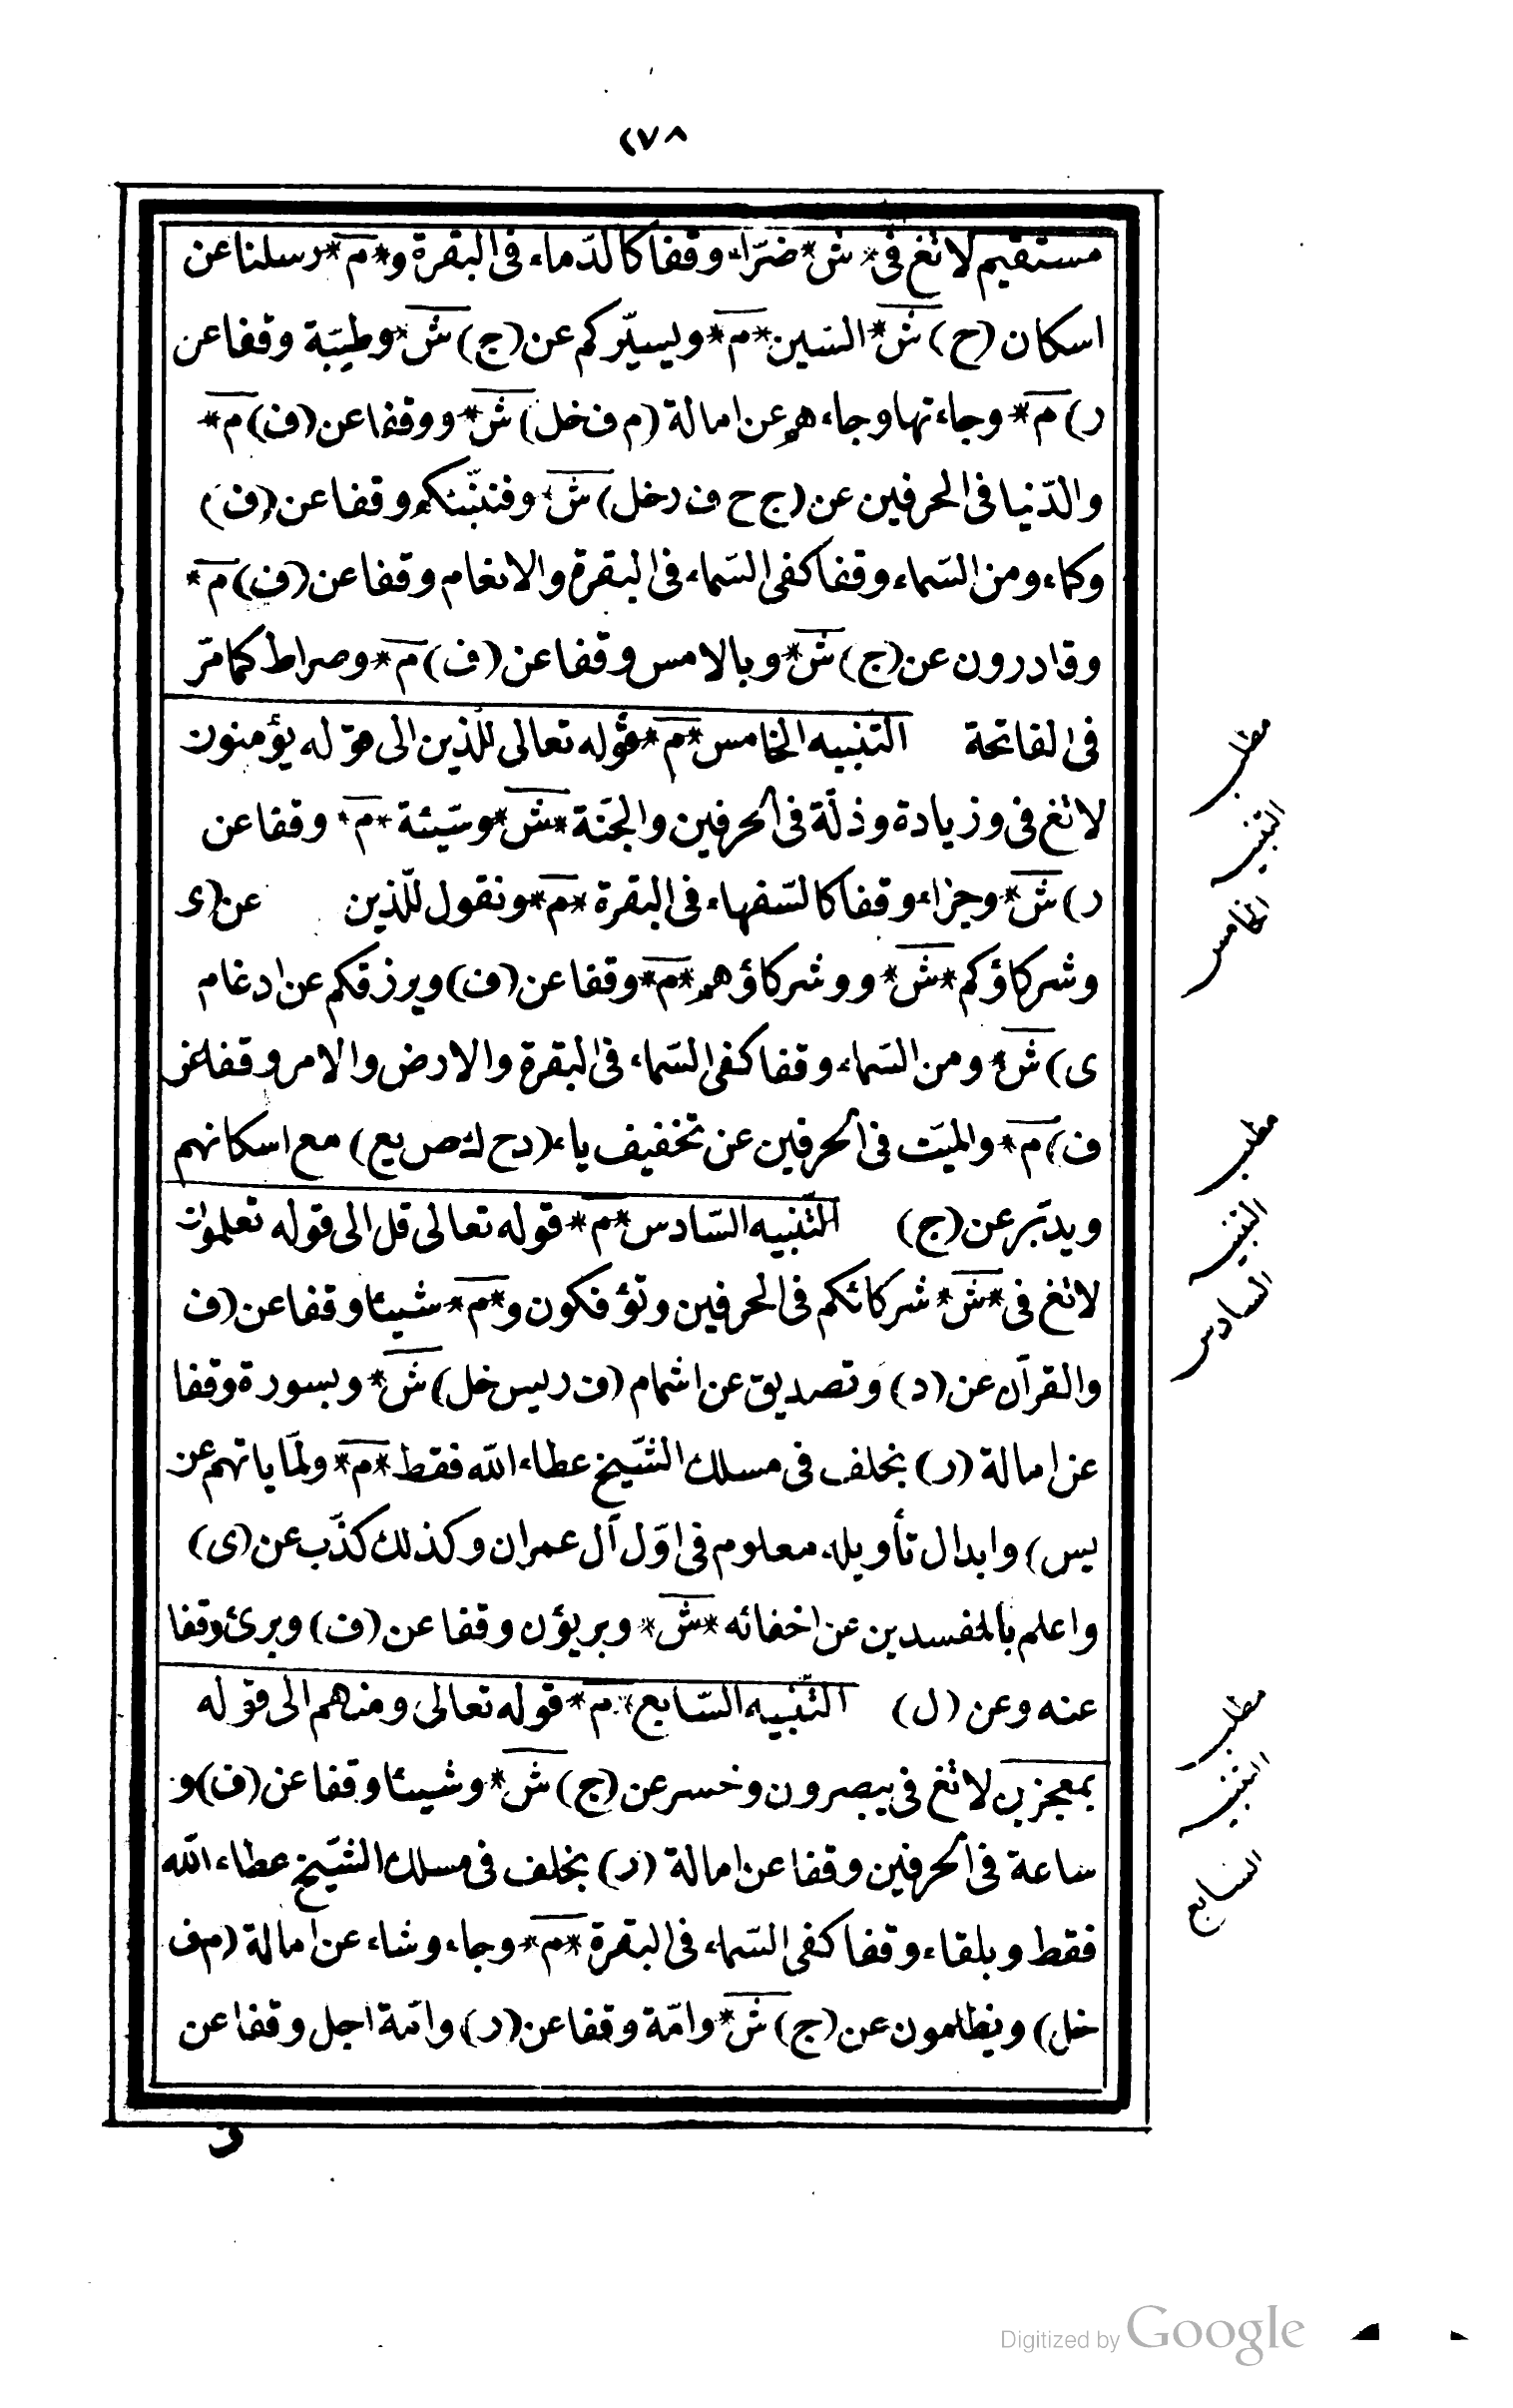 ٢٧٨
مستقيم لا تغ فى * ش * ضرّاء وقفا كالدّماء فى البقرة و * م * رسلنا عن
اسكان (ح) ش * السّين * م * ويسيّركم عن (ج) ش * وطيّبة وقفا عن
ر) م * وجاءتها وجاءهم عن امالة (م ف خل) ش * ووقفا عن (ف) م *
والدّنيا فى الحرفين عن (ج ح ف ر خل) ش * وفننبّئكم وقفا عن (ف)
وكماء ومن السّماء وقفا كفى السّماء فى البقرة والانعام وقفا عن (ف) م *
وقادرون عن (ج) ش * وبالامس وقفا عن (ف) م * وصراط كما مرّ
فى الفاتحة التّنبيه الخامس * م * قوله تعالى للّذين الى قوله يؤمنون
لا تغ فى وزيادة وذلّة فى الحرفين والجنّة * ش * وسيّئة * م * وقفا عن
ر) ش * وجزاء وقفا كالسّفهاء فى البقرة * م * ونقول للّذين عن (ى
وشركاؤكم * ش * ووشركاؤهم * م * وقفا عن (ف) ويرزقكم عن ادغام
ى) ش * ومن السّماء وقفا كفى السّماء فى البقرة والارض والامر وقفا عن
ف) م * والميّت فى الحرفين عن تخفيف ياء (د ح ك ص يع) مع اسكانهم
ويدبّر عن (ج) التّنبيه السّادس * م * قوله تعالى قل الى قوله تعلمون
لا تغ فى * ش * شركائكم فى الحرفين وتؤفكون و * م * شيئا وقفا عن (ف
والقرآن عن (د) وتصديق عن اشمام (ف ر يس خل) ش * وبسورة وقفا
عن امالة (ر) بخلف فى مسلك الشّيخ عطاء الله فقط * م * ولمّا ياتهم عن
يس) وابدال تأويله معلوم فى اوّل آل عمران وكذلك كذّب عن (ى)
واعلم بالمفسدين عن اخفائه * ش * وبريؤن وقفا عن (ف) وبرئ وقفا
عنه وعن (ل) التّنبيه السّابع * م * قوله تعالى ومنهم الى قوله
بمعجزين لا تغ فى يبصرون وخسر عن (ج) ش * وشيئا وقفا عن (ف) و
ساعة فى الحرفين وقفا عن امالة (ر) بخلف فى مسلك الشّيخ عطاء الله
فقط وبلقاء وقفا كفى السّماء فى البقرة * م * وجاء وشاء عن امالة (م ف
خل) ويظلمون عن (ج) ش * وامّة وقفا عن (ر) وامّة اجل وقفا عن
ر
مطلب
التنبيه
الخامس
مطلب
التنبيه
السادس
مطلب
التنبيه
السابع
Digitized by Google